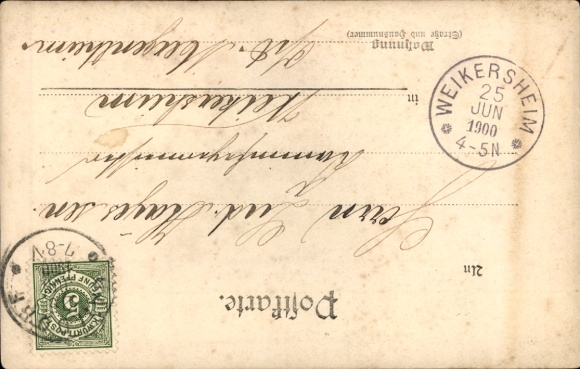 Postkarte.
An
Herrn Lud. Hayessen
in Weikersheim
Wohnung
(Straße und Hausnummer)
O/A. Mergentheim
WEIKERSHEIM
25
JUN
1900
4-5N
7-8V
K. WÜRTT. POST
5
FÜNF PFENNIG